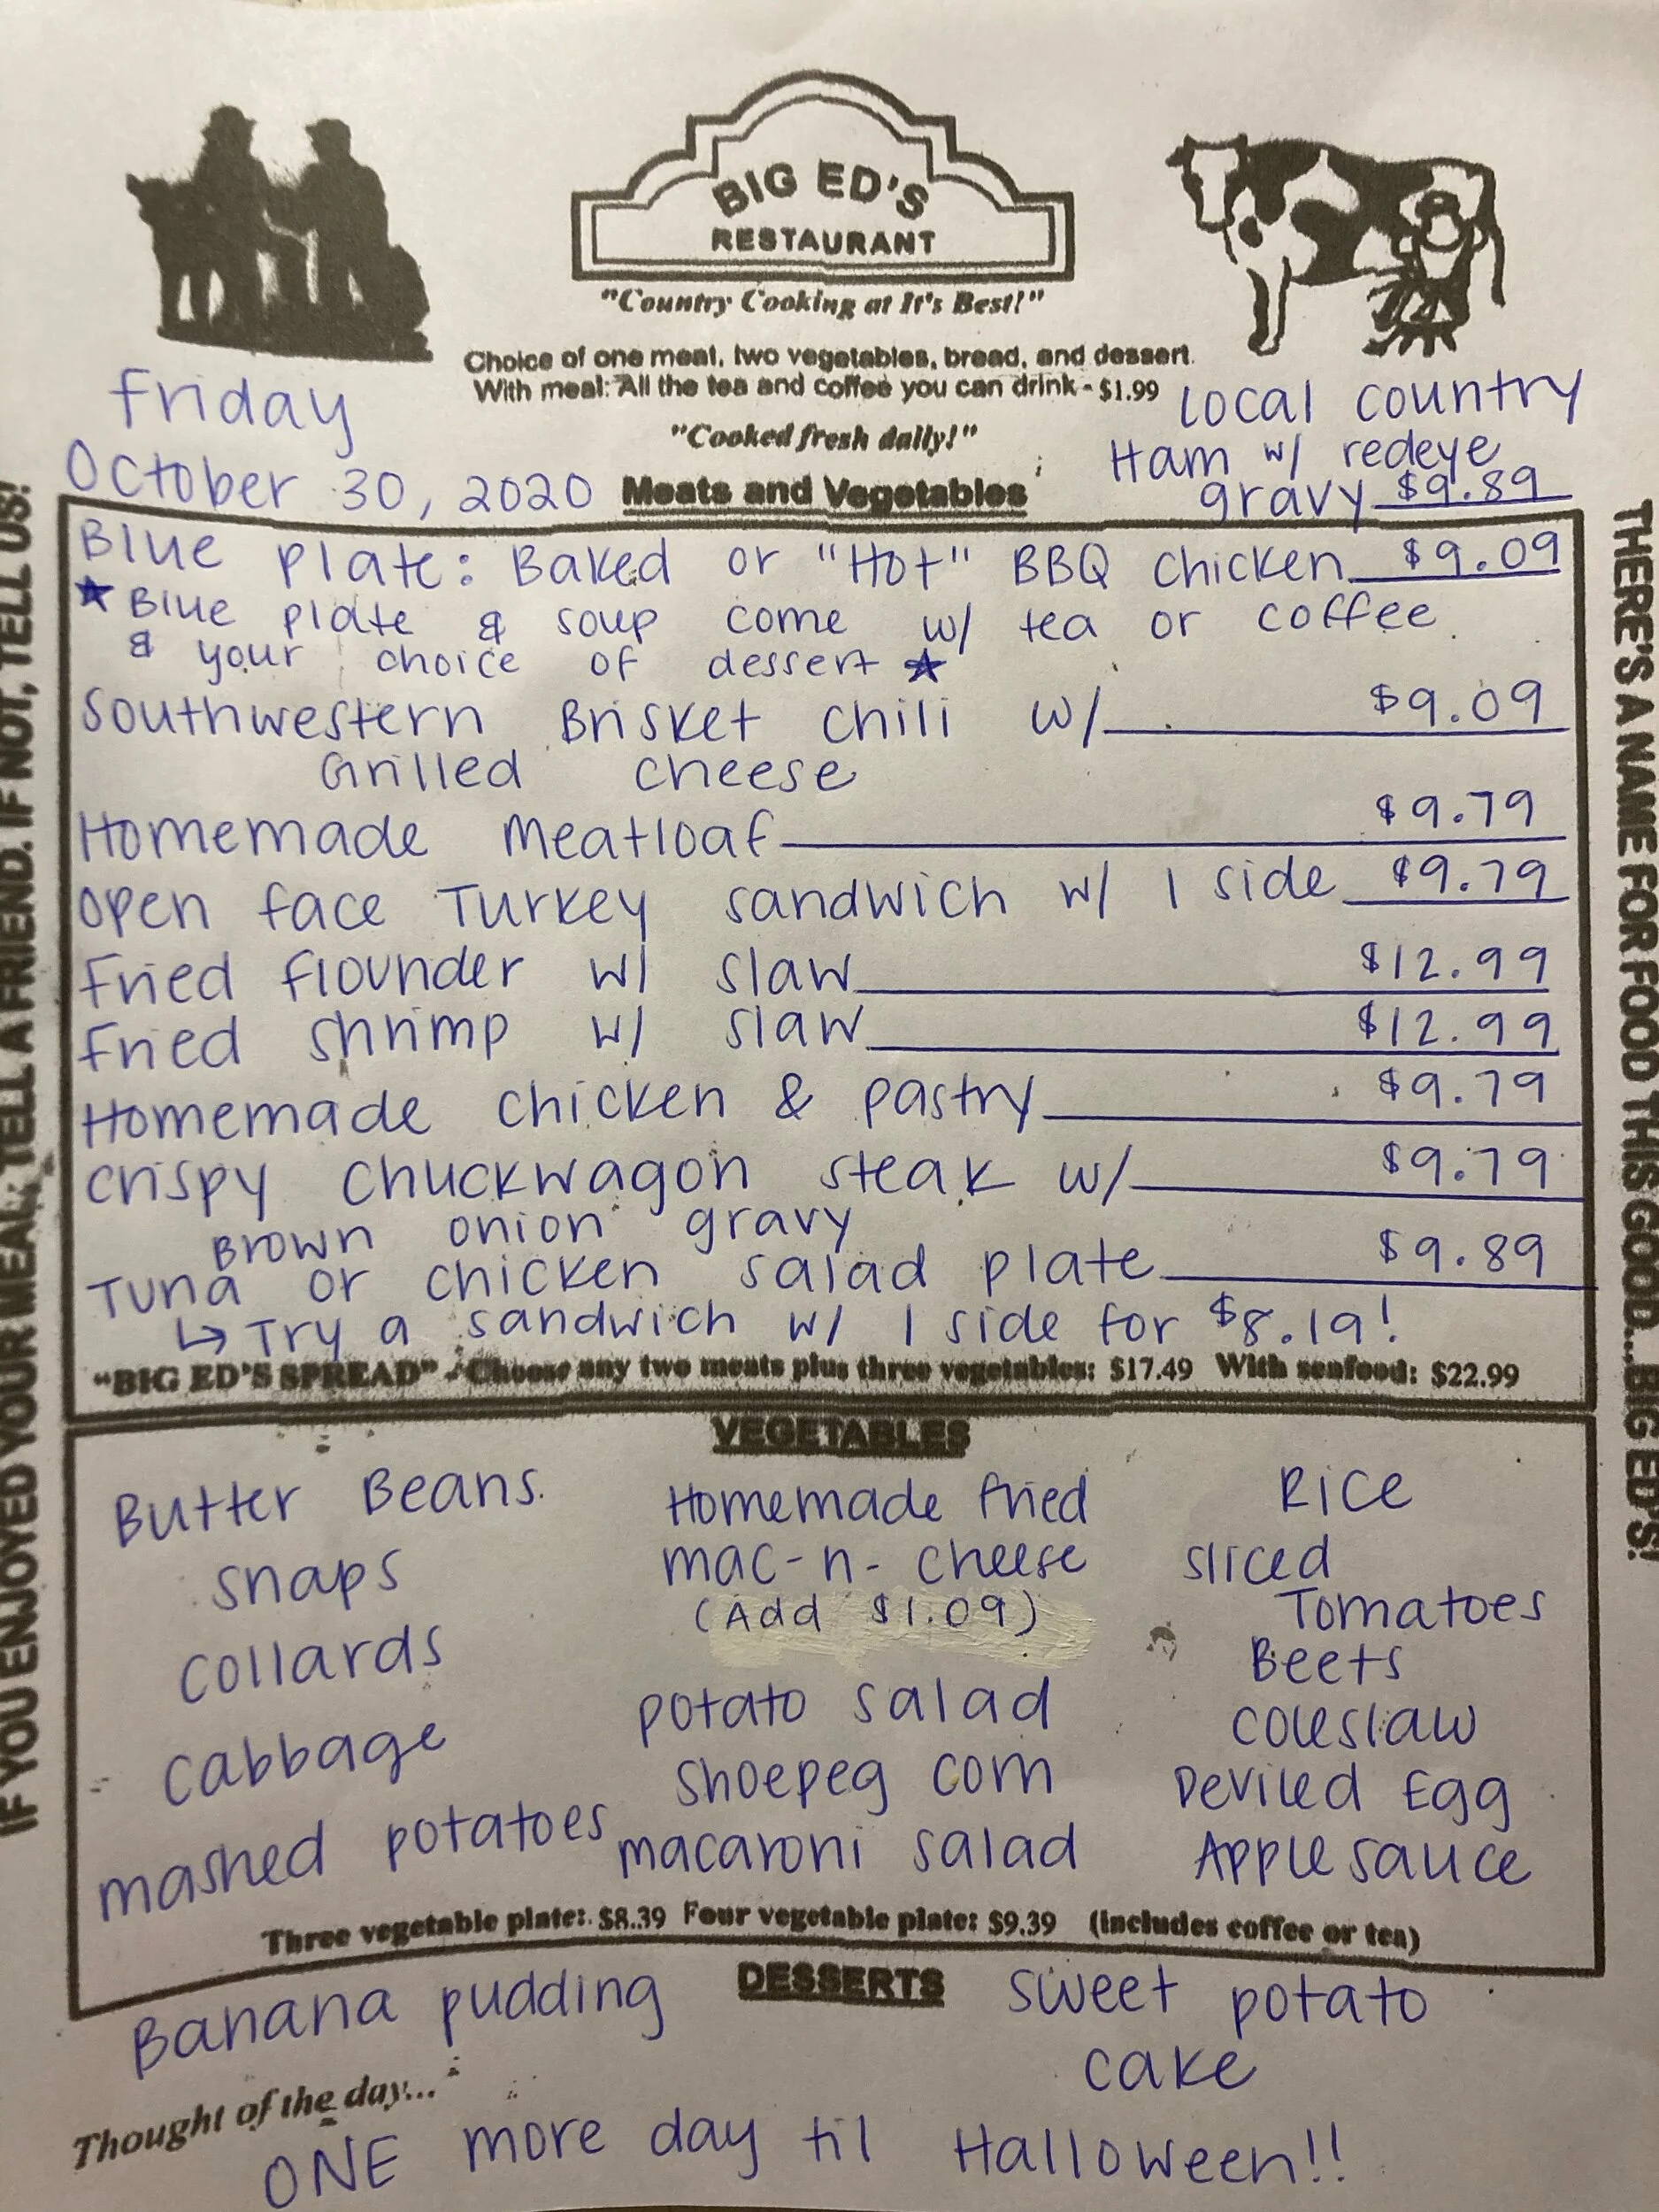 BIG ED'S
RESTAURANT
"Country Cooking at It's Best!"
Choice of one meat, two vegetables, bread, and dessert.
With meal: All the tea and coffee you can drink - $1.99
"Cooked fresh daily!"
Friday
October 30, 2020
Local country
Ham w/ redeye
gravy $9.89
Meats and Vegetables
Blue Plate: Baked or "Hot" BBQ chicken $9.09
★ Blue plate & soup come w/ tea or coffee
& your choice of dessert ★
Southwestern Brisket chili w/ $9.09
Grilled cheese
Homemade meatloaf $9.79
Open face Turkey sandwich w/ 1 side $9.79
Fried flounder w/ slaw $12.99
Fried shrimp w/ slaw $12.99
Homemade chicken & pastry $9.79
Crispy chuckwagon steak w/ $9.79
Brown onion gravy
Tuna or chicken salad plate $9.89
↳ Try a sandwich w/ 1 side for $8.19!
"BIG ED'S SPREAD" - Choose any two meats plus three vegetables: $17.49 With seafood: $22.99
VEGETABLES
Butter Beans
Snaps
Collards
Cabbage
mashed potatoes
Homemade fried
mac-n-cheese
(Add $1.09)
potato salad
Shoepeg corn
macaroni salad
Rice
Sliced
Tomatoes
Beets
Coleslaw
Deviled Egg
Applesauce
Three vegetable plate: $8.39 Four vegetable plate: $9.39 (Includes coffee or tea)
DESSERTS
Banana pudding
sweet potato
cake
Thought of the day...
ONE more day til Halloween!!
IF YOU ENJOYED YOUR MEAL, TELL A FRIEND. IF NOT, TELL US!
THERE'S A NAME FOR FOOD THIS GOOD...BIG ED'S!